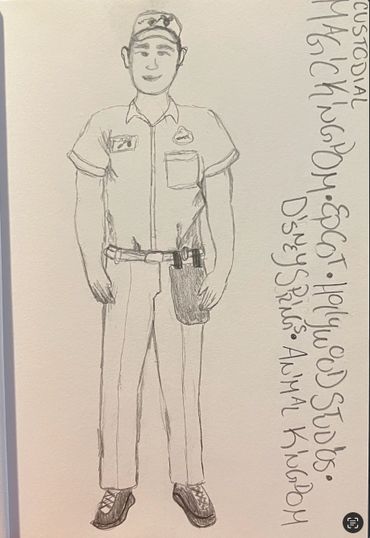 CUSTODIAL
MAGIC KINGDOM • EPCOT • HOllYWOOD STUDiOS •
DiSNEY SPRiNGS • ANiMAL KiNGDOM